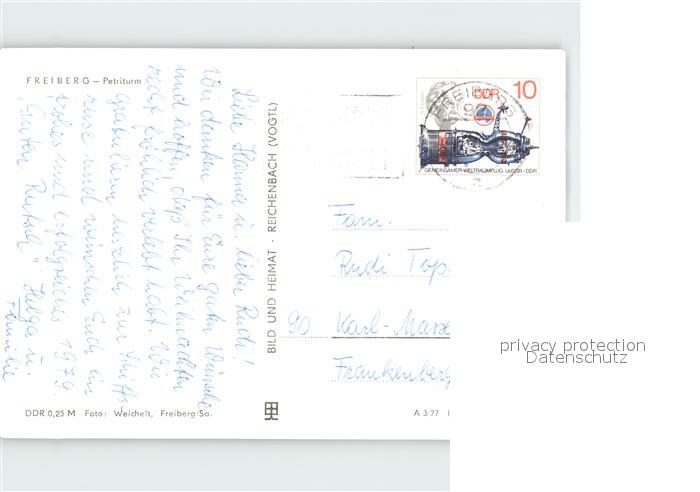 FREIBERG – Petriturm
Liebe Hanna u. lieber Rudi!
Wir danken für Eure guten Wünsche
und hoffen, daß Ihr Weihnachten
recht fröhlich verlebt habt. Wir
gratulieren herzlich zur
und wünschen Euch ein
und erfolgreiches 1979.
"Guten Rutsch" Helga u.
Familie
DDR 0,25 M Foto: Weichelt, Freiberg/Sa.
BILD UND HEIMAT · REICHENBACH (VOGTL)
A 3/77
DDR 10
GEMEINSAMER WELTRAUMFLUG UdSSR-DDR
FREIBERG
Fam.
Rudi Top
90 Karl-Marx
Frankenberg
privacy protection
Datenschutz